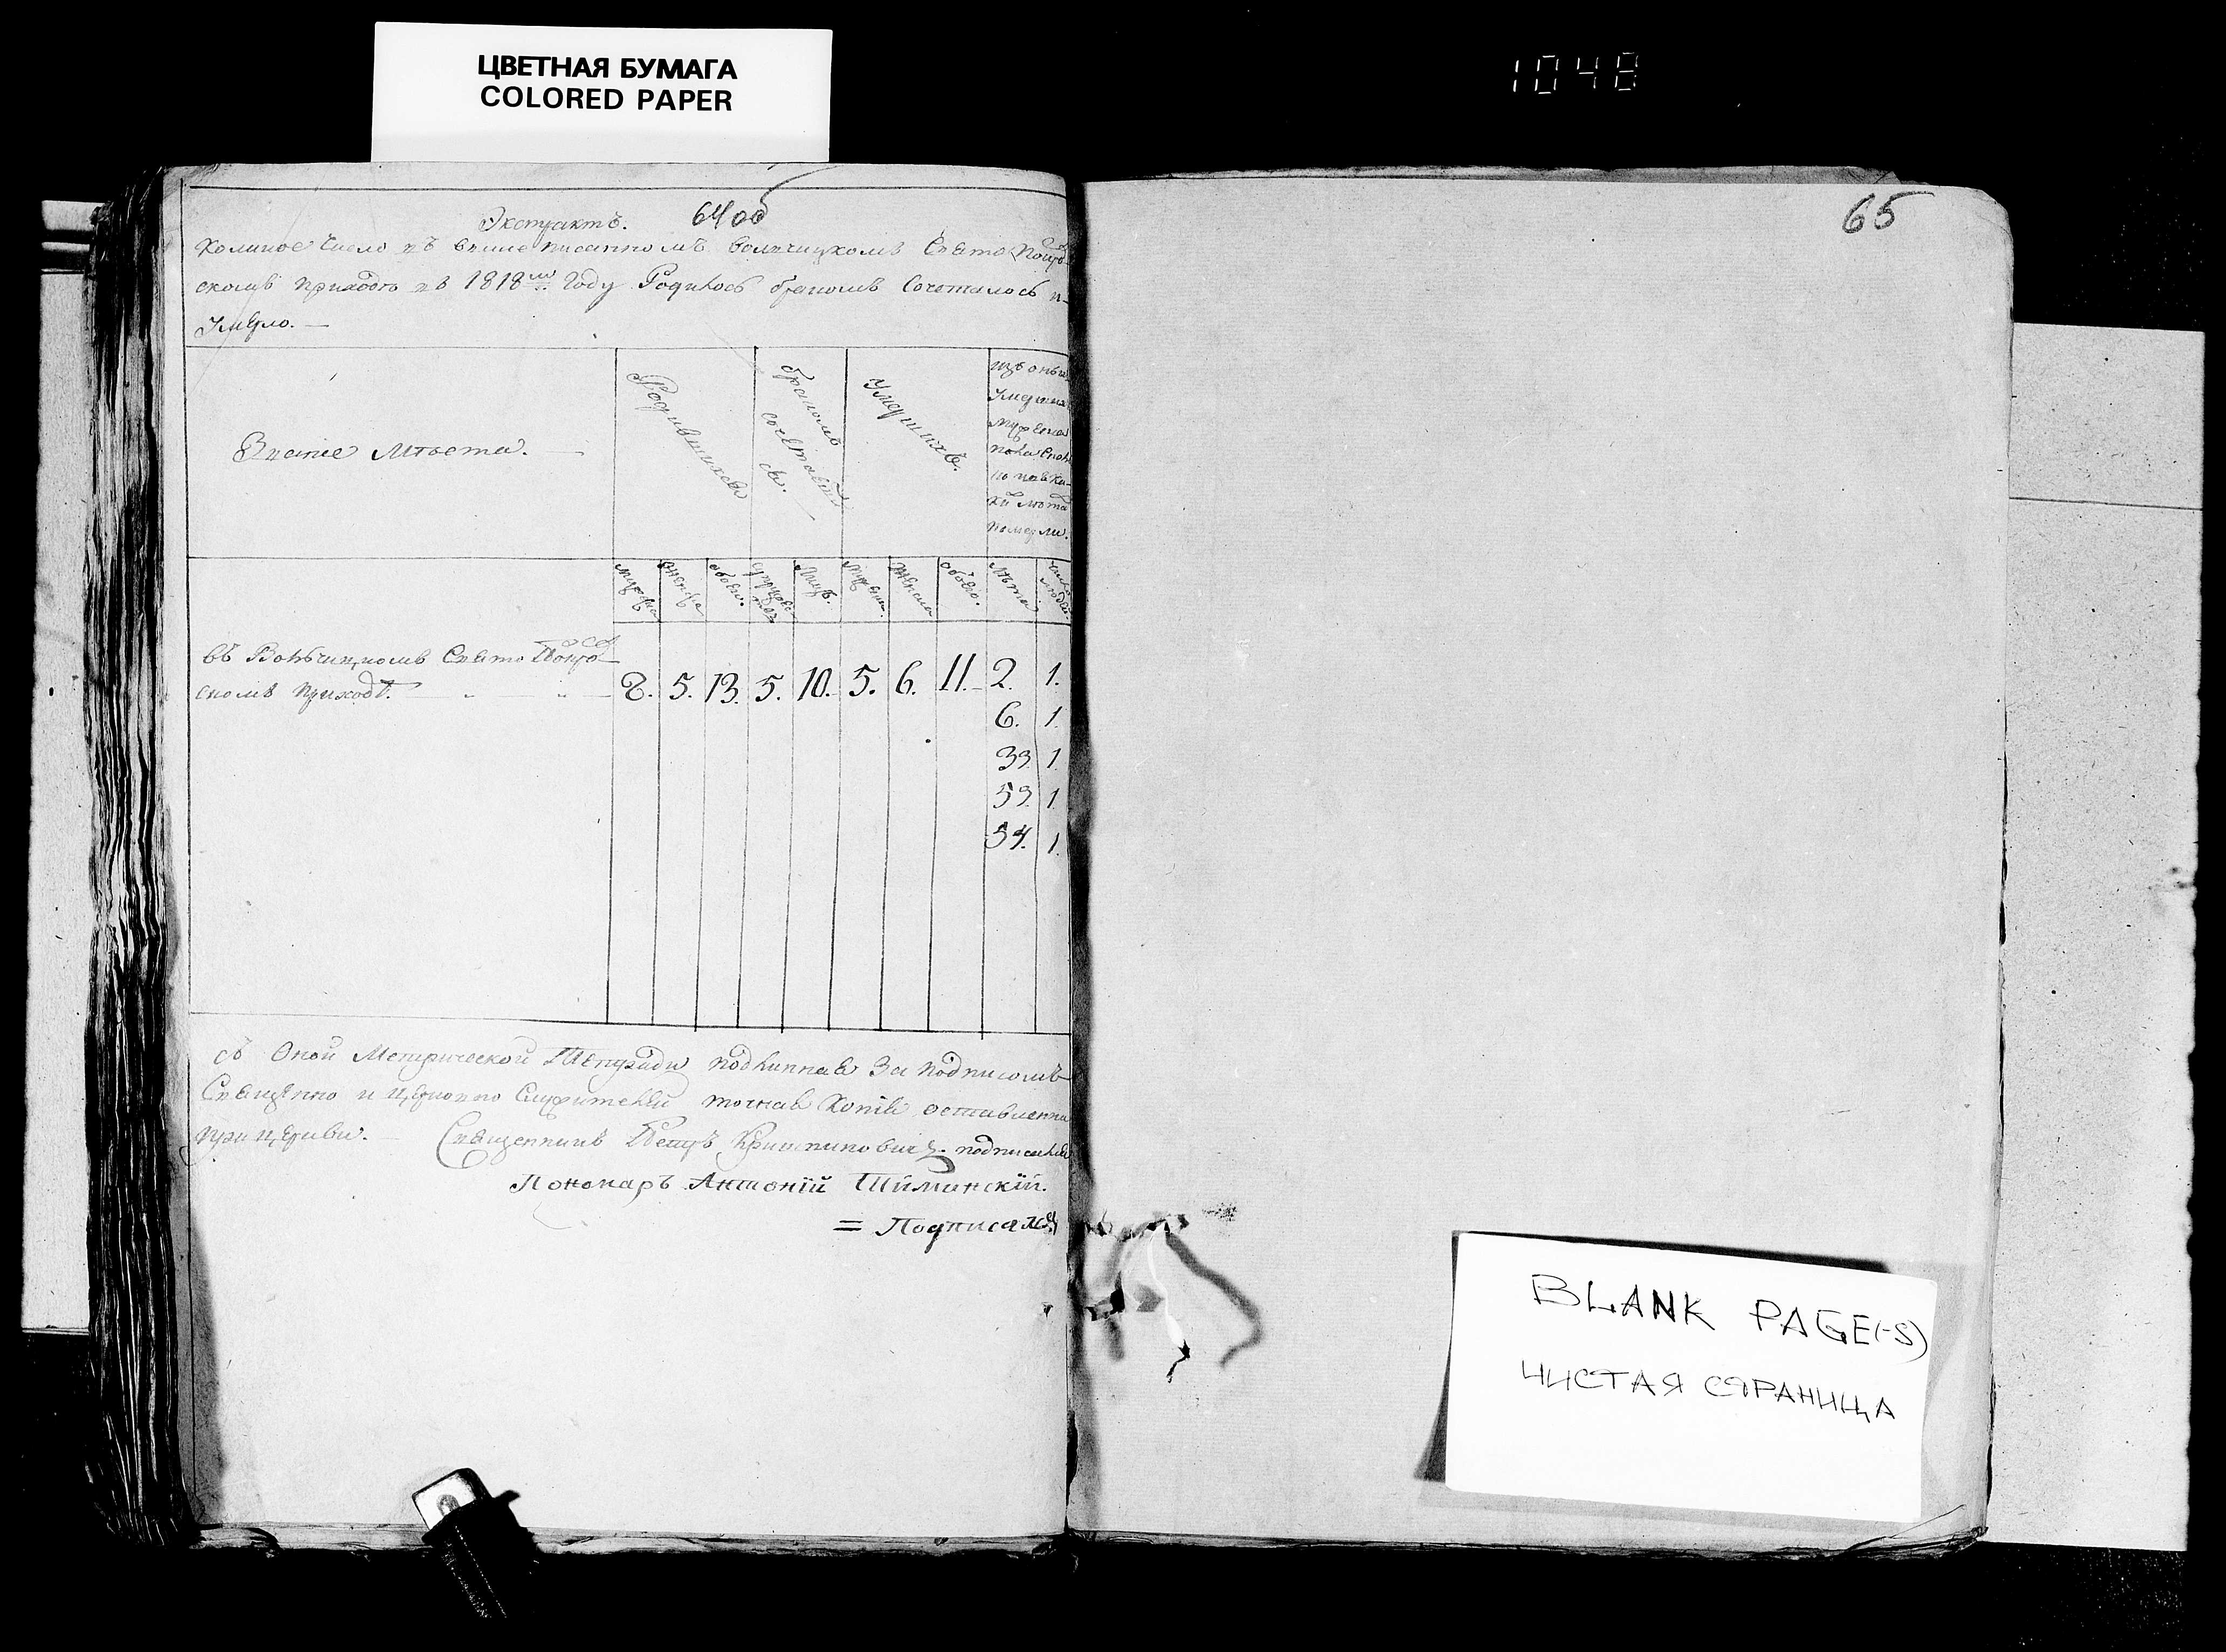 ЦВЕТНАЯ БУМАГА
COLORED PAPER
1048
64об
Экстрактъ.
Коликое Число въ вышеписанномъ Свято Покро
скомъ приходѣ въ 1818мъ Году Родилось бракомъ Сочеталось и
Умерло. —
Званіе Мѣста. —
Родившихся
бракомъ
сочетавших
ся.
Умершихъ.
изъ оныхъ
Умерших
мужеска
пола
по
лѣта
померли.
мужеска
женска
обоего.
супружес
Лицъ.
Мужеска
Женска
обоего.
Лѣта
число
людей
въ Свято Покро
скомъ приходѣ. —
8. 5. 13. 5. 10. 5. 6. 11. 2. 1.
6. 1.
33. 1.
53. 1.
54. 1.
съ Оной Метрической Тетради подлинная За подписомъ
Священно и церковно Служителей точная Копія оставленна
при церкви. — Священникъ Петръ подписался
Пономаръ Антоній
= Подписался
65
BLANK PAGE(-S)
ЧИСТАЯ СТРАНИЦА